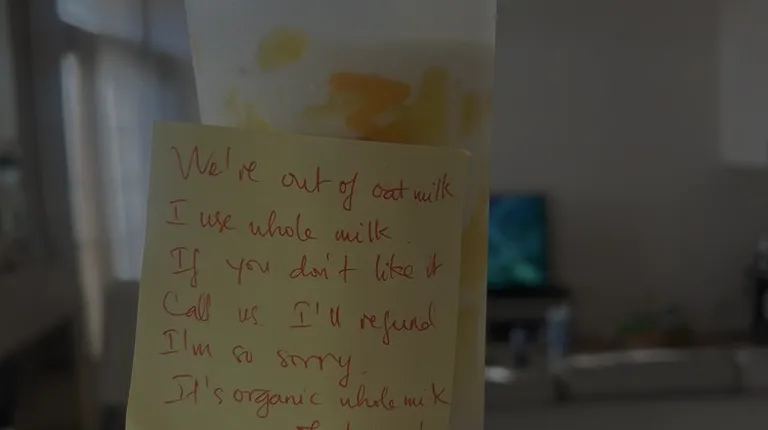 We're out of oat milk
I use whole milk.
If you don't like it
Call us. I'll refund
I'm so sorry.
It's organic whole milk